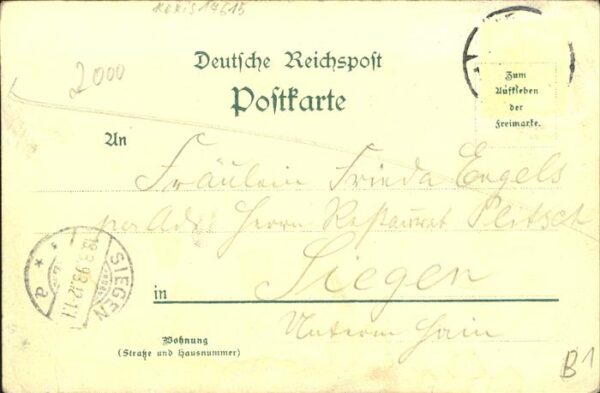 2000
Deutsche Reichspost
Postkarte
Zum
Aufkleben
der
Freimarke.
An
Fräulein Frieda Engels
per Adr. Herrn Restaurat Plitsch
in Siegen
Unterm Hain
SIEGEN
a
Wohnung
(Straße und Hausnummer)
B1